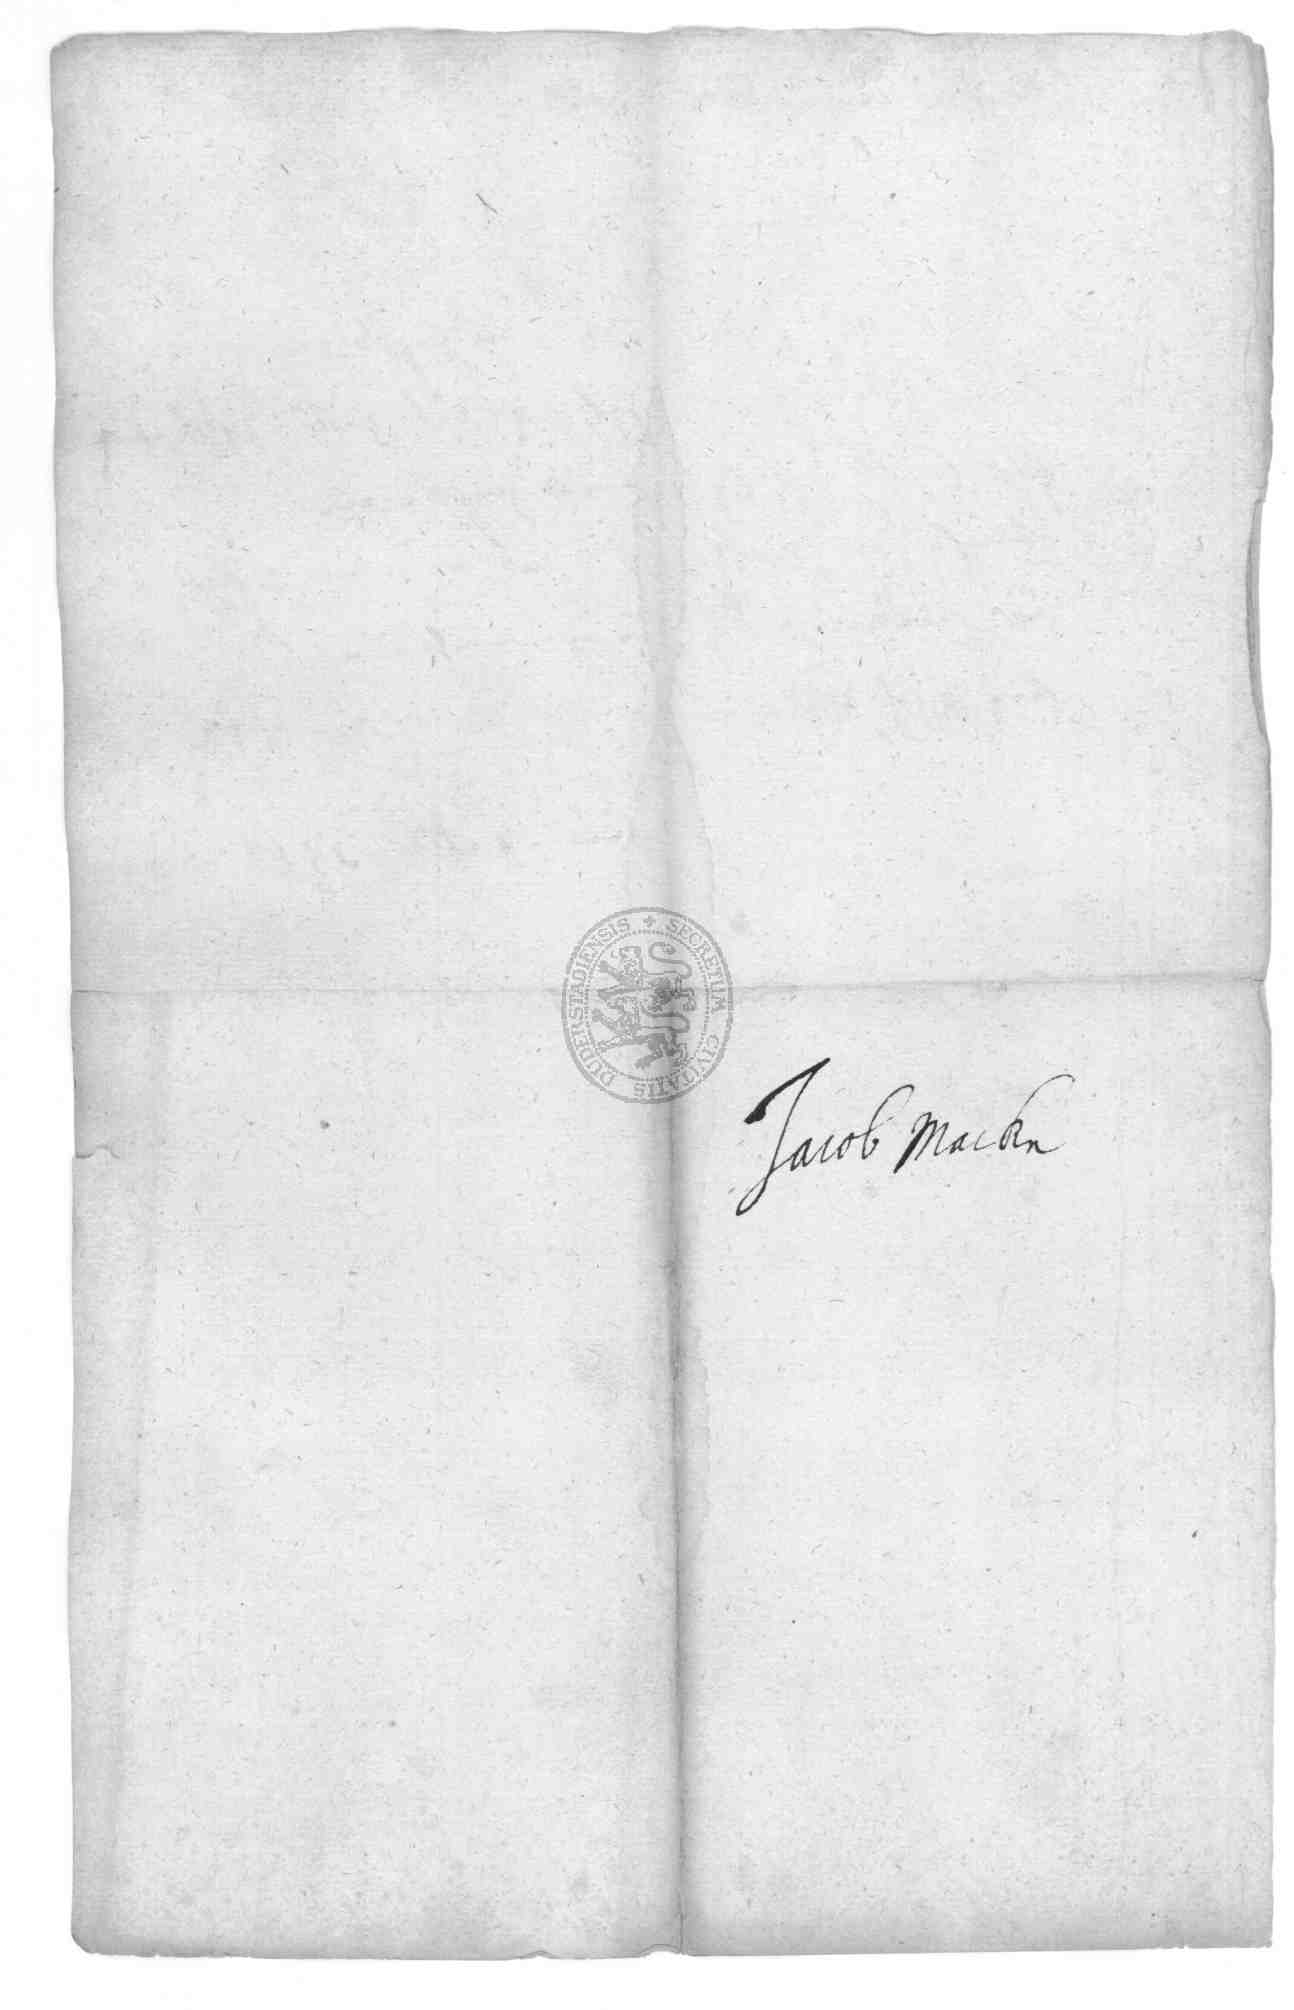 Jacob Mackn
SECRETUM CIVITATIS DUDERSTADIENSIS